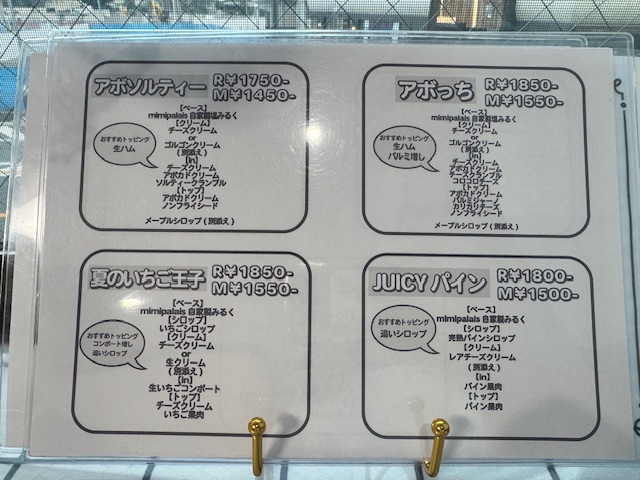 アボソルティー
R¥1750-
M¥1450-
【ベース】
mimipalais 自家製塩みるく
【クリーム】
チーズクリーム
or
ゴルゴンクリーム
(別添え)
【in】
チーズクリーム
アボカドクリーム
ソルティークランブル
【トップ】
アボカドクリーム
ノンフライシード
メープルシロップ (別添え)
おすすめトッピング
生ハム
アボっち
R¥1850-
M¥1550-
【ベース】
mimipalais 自家製塩みるく
【クリーム】
チーズクリーム
or
ゴルゴンクリーム
(別添え)
【in】
チーズクリーム
アボカドクリーム
チーズクランブル
コロコロチーズ
【トップ】
アボカドクリーム
パルミジャーノ
カリカリチーズ
ノンフライシード
メープルシロップ (別添え)
おすすめトッピング
生ハム
パルミ増し
夏のいちご王子
R¥1850-
M¥1550-
【ベース】
mimipalais 自家製みるく
【シロップ】
いちごシロップ
【クリーム】
チーズクリーム
or
生クリーム
(別添え)
【in】
生いちごコンポート
【トップ】
チーズクリーム
いちご果肉
おすすめトッピング
コンポート増し
追いシロップ
JUICY パイン
R¥1800-
M¥1500-
【ベース】
mimipalais 自家製みるく
【シロップ】
完熟パインシロップ
【クリーム】
レアチーズクリーム
(別添え)
【in】
パイン果肉
【トップ】
パイン果肉
おすすめトッピング
追いシロップ